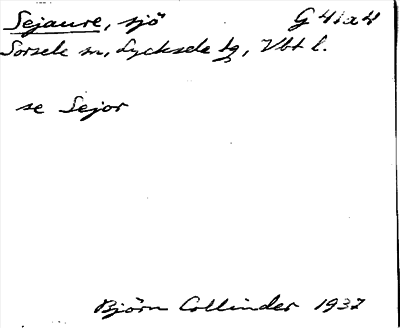 Sejaure, sjö G 41a4
Sorsele sn, Lycksele tg, Vbt l.
se Sejor
Björn Collinder 1937